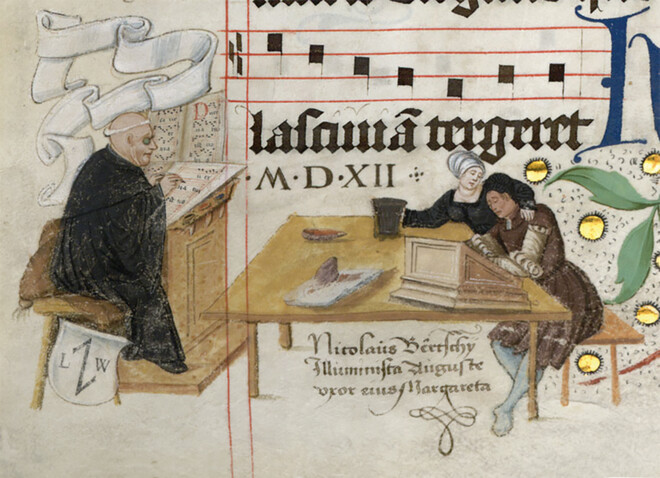 lasciuiā tergeret
·M·D·XII
Nicolaus Bertschy
Illuminista Auguste
vxor eius Margareta
L W